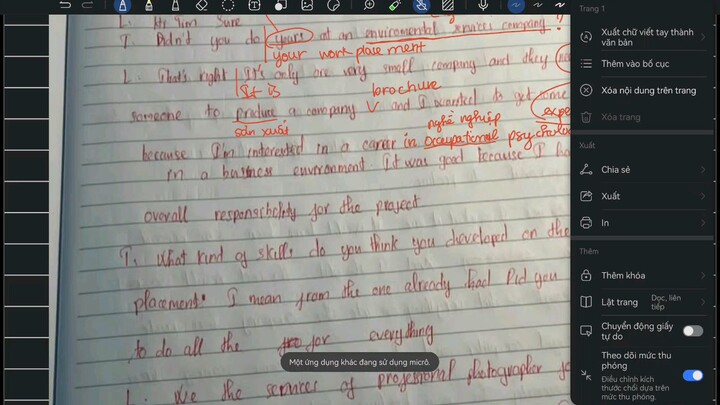 L. Hi Tim Sure
T. Didn't you do years at an enviromental services company?
your work placement
L. That's right It's only one very small company and they
It is
brochure
someone to produce a company V and I wanted to get some
sản xuất
nghề nghiệp
because I'm interested in a career in occupational psycholo
in a business environment It was good because I ha
overall responsibility for the project
T. What kind of skills do you think you developed on the
placement. I mean from the one already had Did you
to do all the for everything
L. We the services of professional photographer fo
Trang 1
Xuất chữ viết tay thành văn bản
Thêm vào bố cục
Xóa nội dung trên trang
Xóa trang
Xuất
Chia sẻ
Xuất
In
Thêm
Thêm khóa
Lật trang
Dọc, liên tiếp
Chuyển động giấy tự do
Theo dõi mức thu phóng
Điều chỉnh kích thước chổi dựa trên mức thu phóng.
Một ứng dụng khác đang sử dụng micrô.